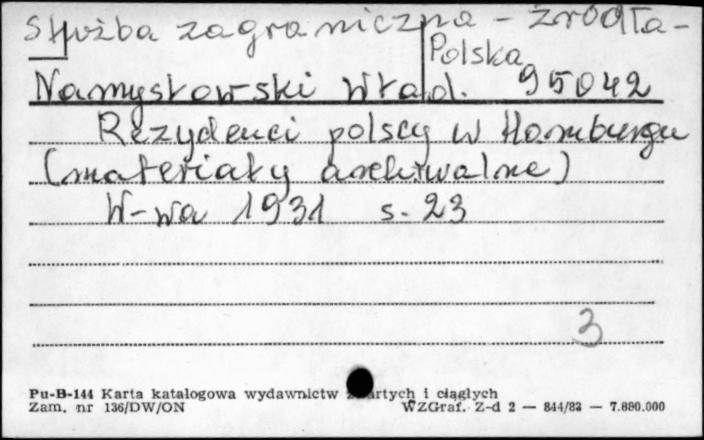 Służba zagraniczna - źródła -
Polska
Namysłowski Wład. 95042
Rezydenci polscy w Hamburgu
(materiały archiwalne)
W-wa 1931 s. 23
3
Pu-B-144 Karta katalogowa wydawnictw i ciągłych
Zam. nr 136/DW/ON WZGraf. Z-d 2 — 844/83 — 7.880.000